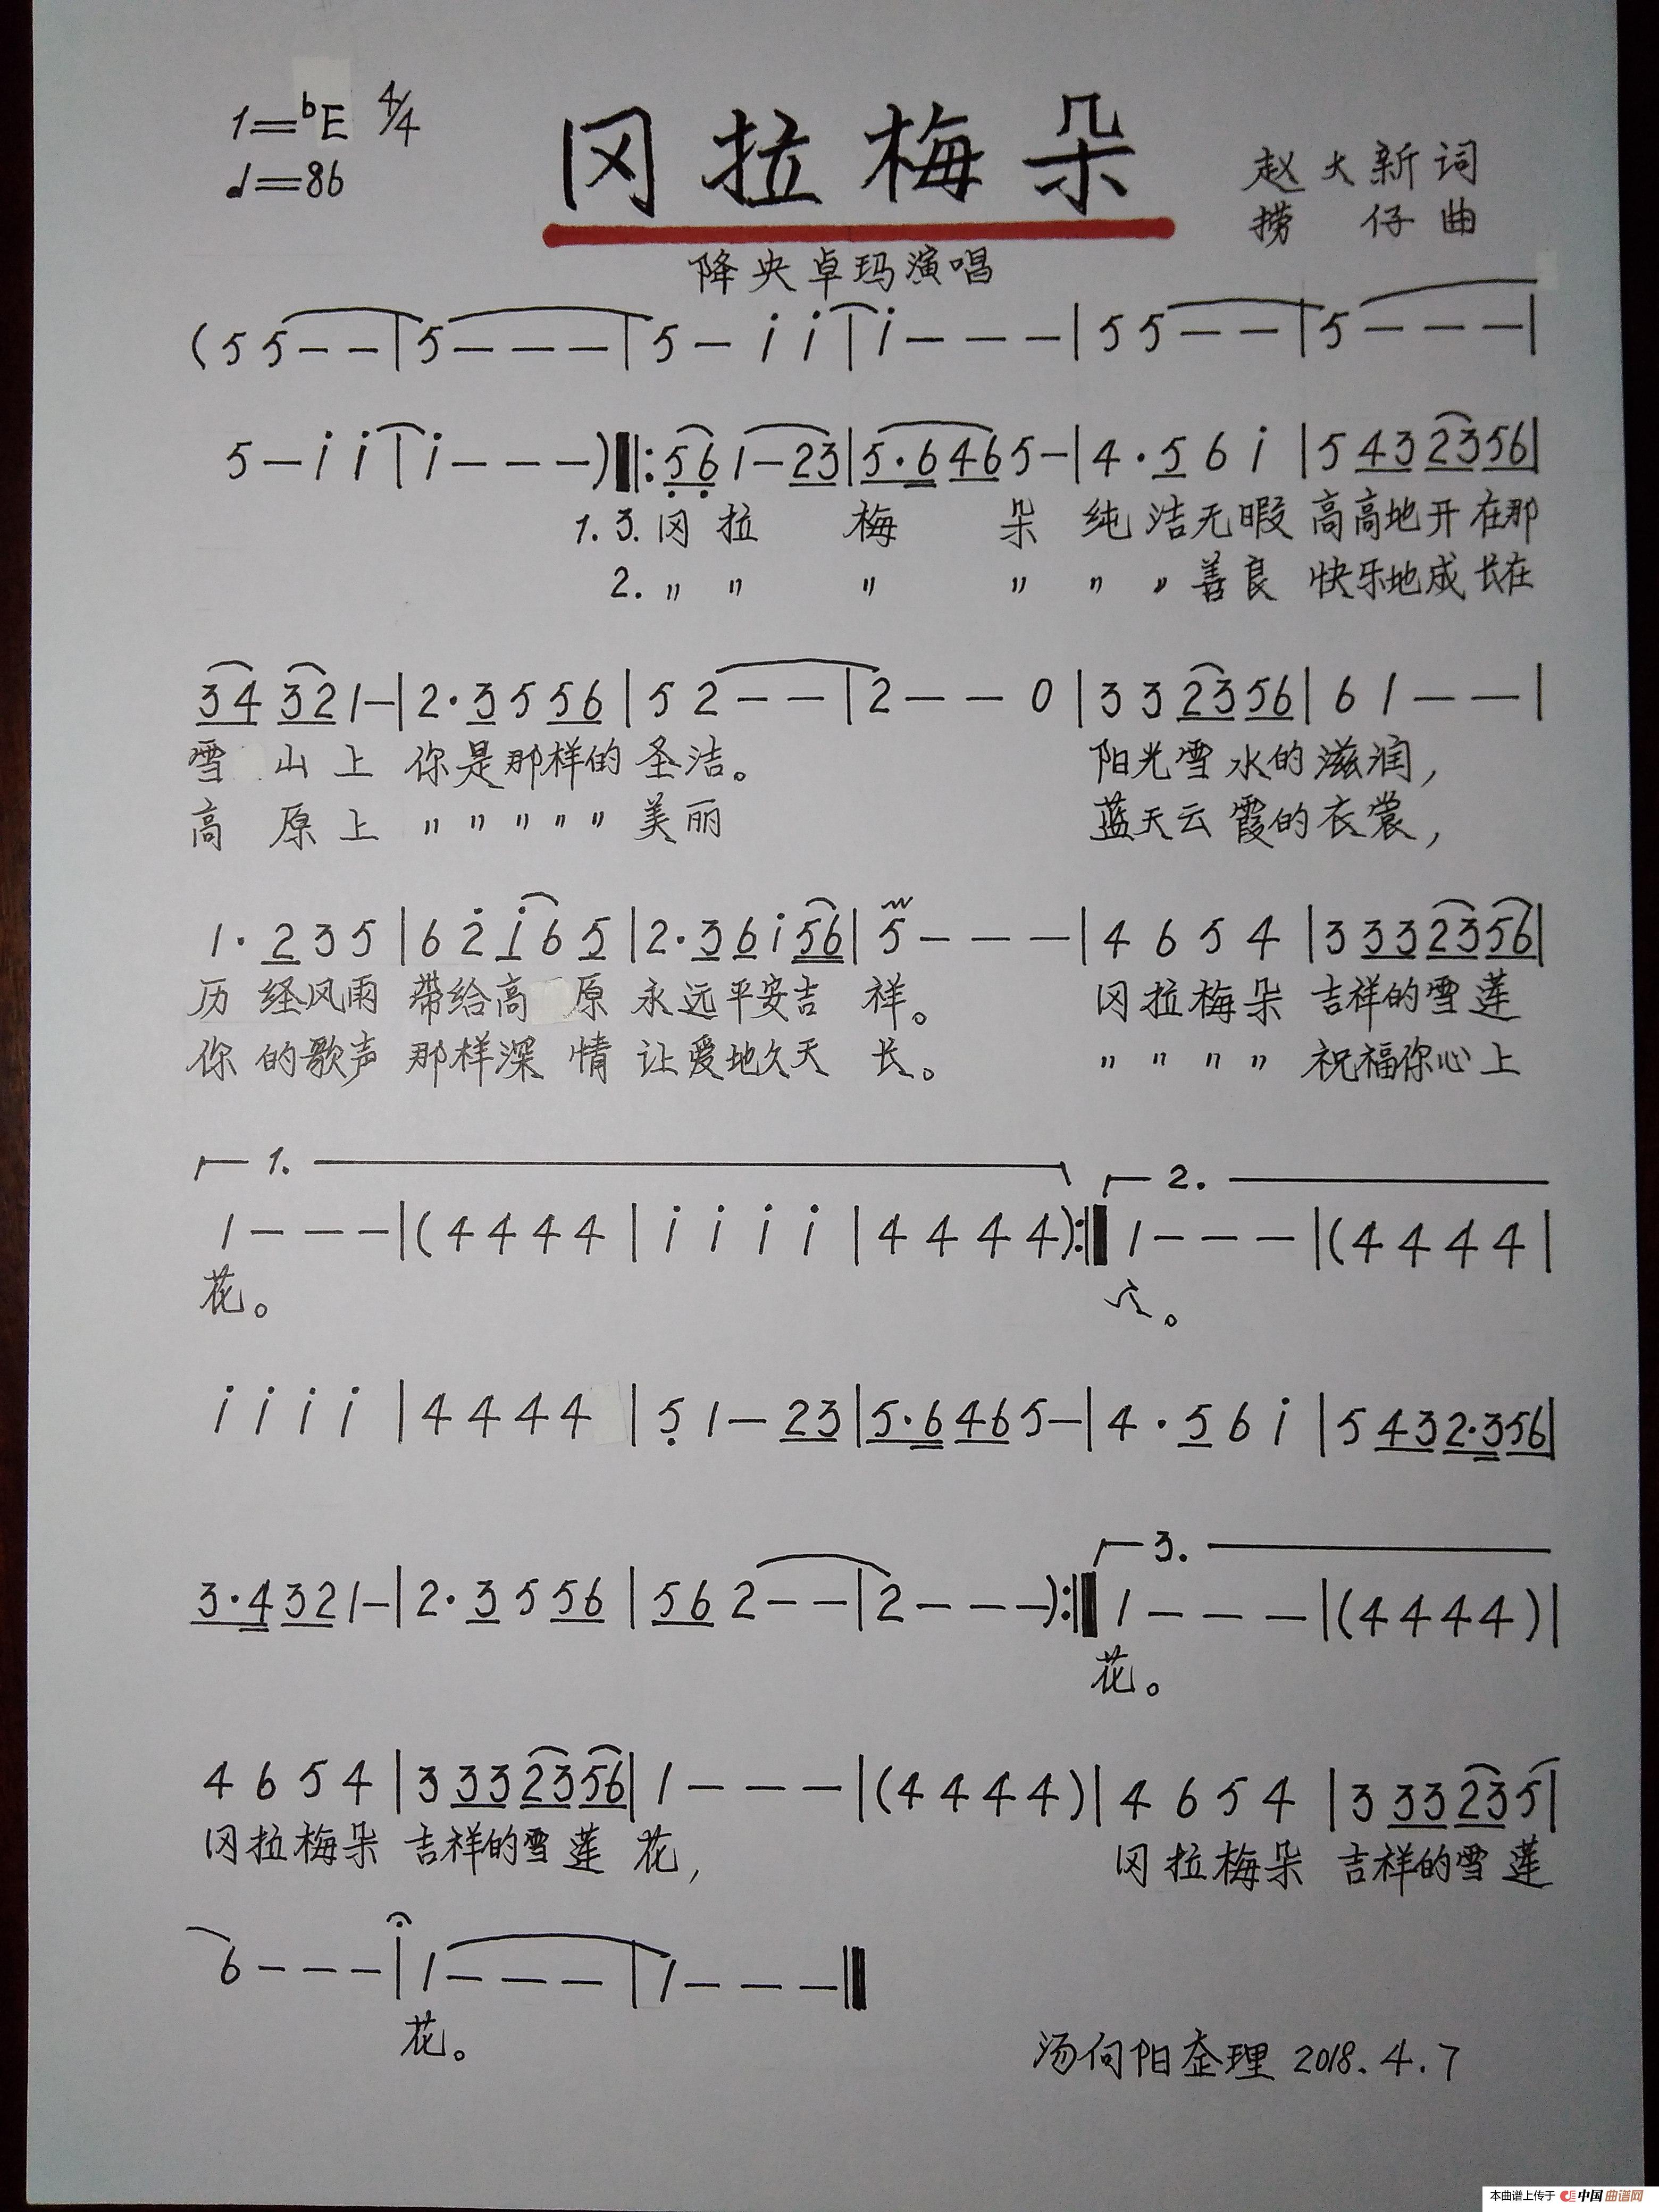 1=ᵇE 4/4
♩=86
冈拉梅朵
赵大新词
捞仔曲
降央卓玛演唱
(5 5 - - | 5 - - - | 5 - i i | i - - - | 5 5 - - | 5 - - - |
5 - i i | i - - - ) ‖: 5 6 1 - 2 3 | 5 · 6 4 6 5 - | 4 · 5 6 i | 5 4 3 2 3 5 6 |
1. 3. 冈拉 梅 朵 纯洁无暇 高高地开在那
2. 〃 〃 〃 〃 〃 〃 善良 快乐地成长在
3 4 3 2 1 - | 2 · 3 5 5 6 | 5 2 - - | 2 - - 0 | 3 3 2 3 5 6 | 6 1 - - |
雪 山上 你是那样的圣洁。 阳光雪水的滋润，
高 原上 〃 〃 〃 〃 〃 美丽 蓝天云霞的衣裳，
1 · 2 3 5 | 6 2̇ i 6 5 | 2 · 3 6 i 5 6 | 5 - - - | 4 6 5 4 | 3 3 3 2 3 5 6 |
历 经风雨 带给高 原 永远平安吉 祥。 冈拉梅朵 吉祥的雪莲
你 的歌声 那样深 情 让爱地久天 长。 〃 〃 〃 〃 祝福你心上
1. 2.
1 - - - | ( 4 4 4 4 | i i i i | 4 4 4 4 ) :‖ 1 - - - | ( 4 4 4 4 |
花。
i i i i | 4 4 4 4 | 5 1 - 2 3 | 5 · 6 4 6 5 - | 4 · 5 6 i | 5 4 3 2 · 3 5 6 |
3.
3 · 4 3 2 1 - | 2 · 3 5 5 6 | 5 6 2 - - | 2 - - - ) :‖ 1 - - - | ( 4 4 4 4 ) |
花。
4 6 5 4 | 3 3 3 2 3 5 6 | 1 - - - | ( 4 4 4 4 ) | 4 6 5 4 | 3 3 3 2 3 5 |
冈拉梅朵 吉祥的雪莲 花， 冈拉梅朵 吉祥的雪莲
6 - - - | 1 - - - | 1 - - - ‖
花。
汤向阳 理 2018.4.7
本曲谱上传于 中国曲谱网